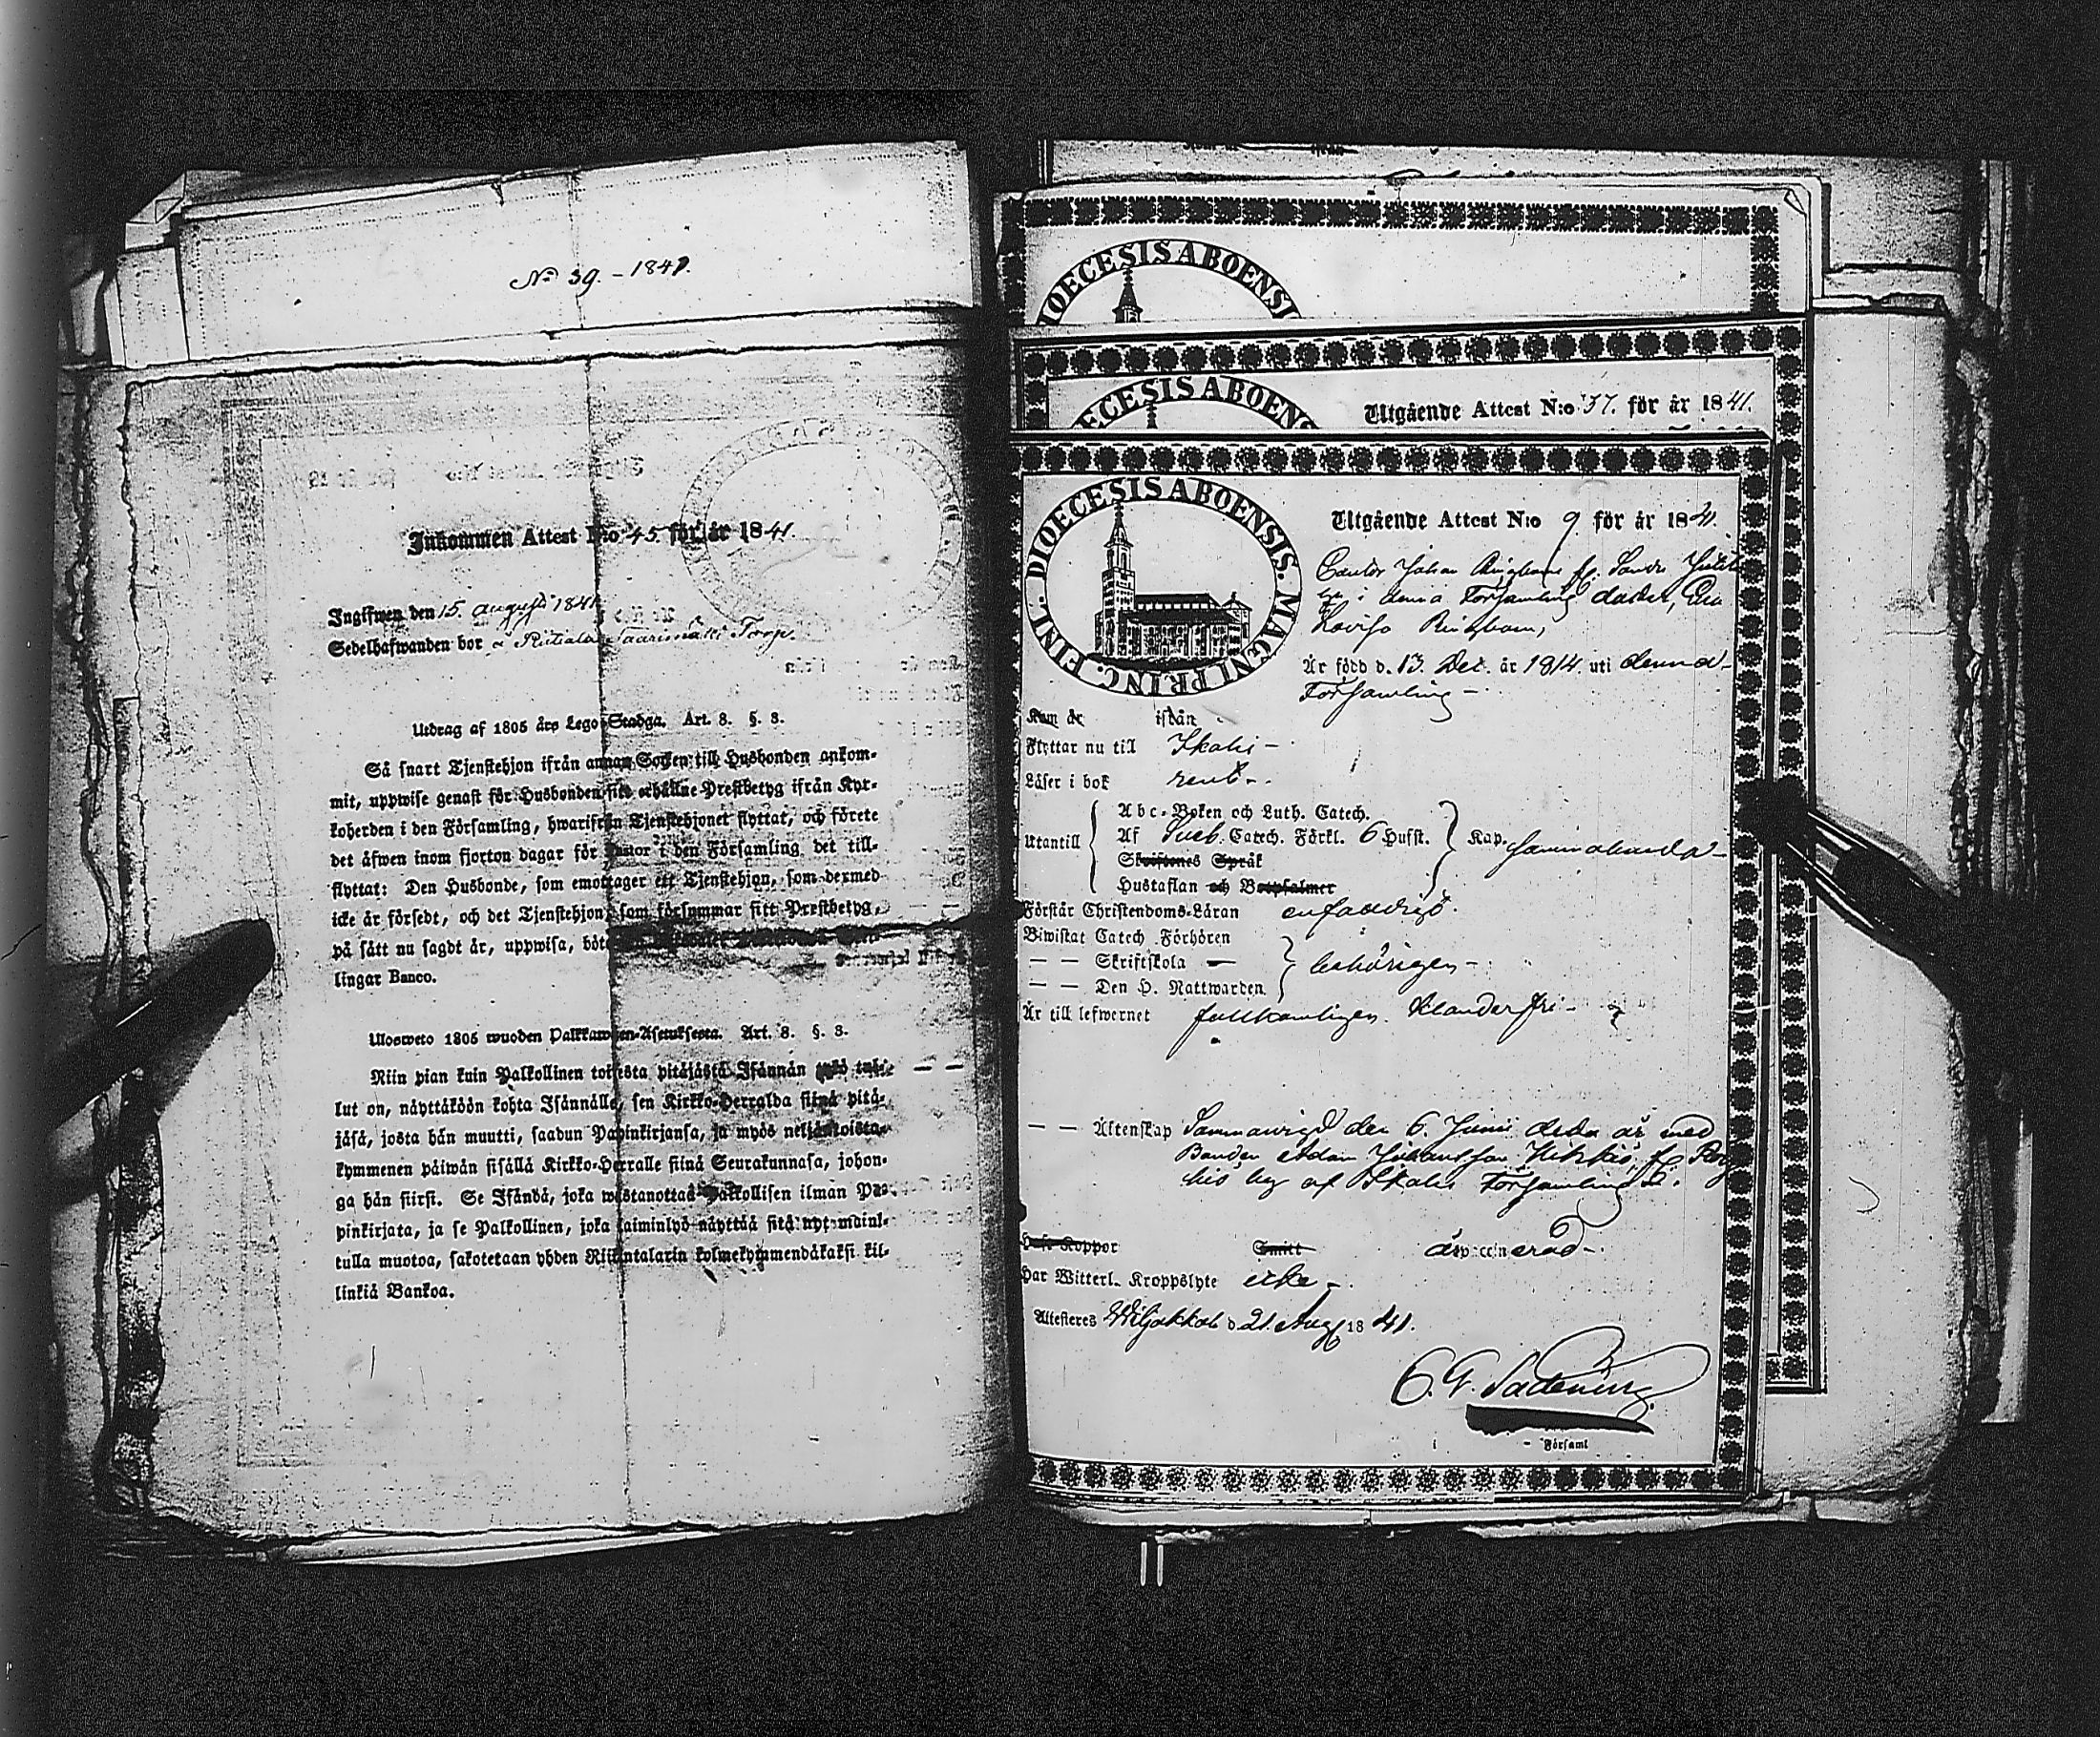 No 39. - 1841.
Inkommen Attest N:o 45 för år 1841.
Ingifwen den 15. augusti 1841
Sedelhafwanden bor Torp.
Utdrag af 1805 års Lego-Stadga. Art. 8. §. 8.
Så snart Tjenstehjon ifrån annan Socken till Husbonden ankom-
mit, uppwise genast för Husbonden sitt erhållne Prestbetyg ifrån Kyr-
koherden i den Församling, hwarifrån Tjenstehjonet flyttat, och förete
det äfwen inom fjorton dagar för Pastor i den Församling det till-
flyttat: Den Husbonde, som emottager ett Tjenstehjon, som dermed
icke är försedt, och det Tjenstehjon, som försummar sitt Prestbetyg,
på sätt nu sagdt är, uppwisa, böte
lingar Banco.
Ulosweto 1805 wuoden Palkkawäen-Asetuksesta. Art. 8. §. 8.
Niin pian kuin Palkollinen toisesta pitäjästä Isännän tykö tul-
lut on, näyttäköön kohta Isännälle, sen Kirkko-Herralda siinä pitä-
jäsä, josta hän muutti, saadun Papinkirjansa, ja myös neljäntoista-
kymmenen päiwän sisällä Kirkko-Herralle siinä Seurakunnasa, johon-
ga hän siirsi. Se Isändä, joka wastanottaa Palkollisen ilman Pa-
pinkirjata, ja se Palkollinen, joka laiminlyö näyttää sitä nyt mainl-
tulla muotoa, sakotetaan yhden Riikintalarin kolmekymmendäkaksi kil-
linkiä Bankoa.
DIOECESIS ABOENSI
ECESIS ABOENS
Utgående Attest N:o 37. för år 1841.
DIOECESIS ABOENSIS. MAGNI PRINC. FINL.
Utgående Attest N:o 9. för år 1841.
Cantor Johan Ringbom
i denna Församling dotter,
Lovisa Ringbom,
Är född d. 13. Dec. år 1814. uti denna
Församling -
Kom år ifrån
Flyttar nu till Ikalis -
Läser i bok rent -
Utantill
Abc-Boken och Luth. Catech.
Af Sveb. Catech. Förkl. 6 Hufst. Kap.
Skriftenes Språk
Hustaflan och Botpsalmer
Förstår Christendoms-Läran enfaldigt.
Biwistat Catech Förhören
— — Skriftskola —
— — Den H. Nattwarden behörigen -
Är till lefwernet fullkomligen klanderfri -
— — Äktenskap Sammanvigd den 6. Junii detta år med
Bonden Adam Johansson
by af Ikalis Församling.
Haft Koppor Smitt är vaccinerad -
Har Witterl. Kroppslyte icke -
Attesteras Wiljakkala d. 21. Aug 1841.
i - Församl